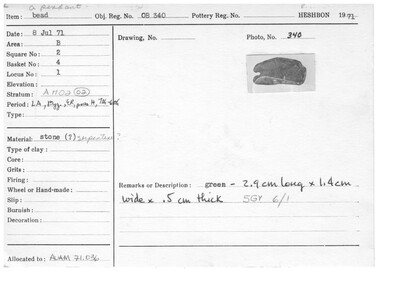 a pendant
Item: bead Obj. Reg. No. OB 340 Pottery Reg. No. HESHBON 1971
Date: 8 Jul 71 Drawing, No. Photo, No. 340
Area: B
Square No: 2
Basket No: 4
Locus No: 1
Elevation:
Stratum:
Period: LA,
Type:
Material: stone (?) serpentine?
Type of clay:
Core:
Grits:
Firing:
Wheel or Hand-made:
Slip:
Burnish:
Decoration:
Remarks or Description: green - 2.9 cm long x 1.4 cm
wide x .5 cm thick 5GY 6/1
Allocated to: AUAM 71.036